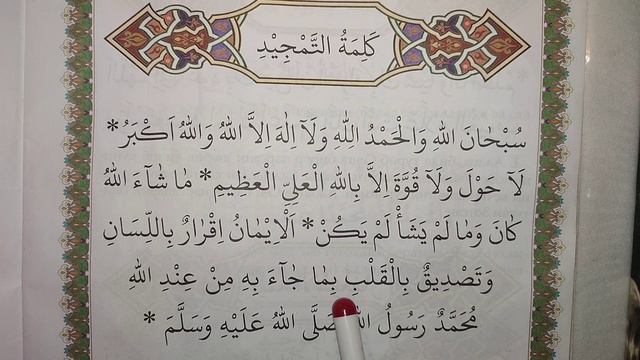 كَلِمَةُ التَّمْجِيْدِ
سُبْحَانَ اللهِ وَالْحَمْدُ لِلّٰهِ وَلَآ اِلٰهَ اِلاَّ اللهُ وَاللهُ اَكْبَرُ *
لَآ حَوْلَ وَلَآ قُوَّةَ اِلاَّ بِاللهِ الْعَلِيِّ الْعَظِيمِ * مَا شَآءَ اللهُ
كَانَ وَمَا لَمْ يَشَأْ لَمْ يَكُنْ * اَلْاِيْمَانُ اِقْرَارٌ بِاللِّسَانِ
وَتَصْدِيقٌ بِالْقَلْبِ بِمَا جَآءَ بِهِ مِنْ عِنْدِ اللهِ
مُحَمَّدٌ رَسُولُ اللهِ صَلَّى اللهُ عَلَيْهِ وَسَلَّمَ *